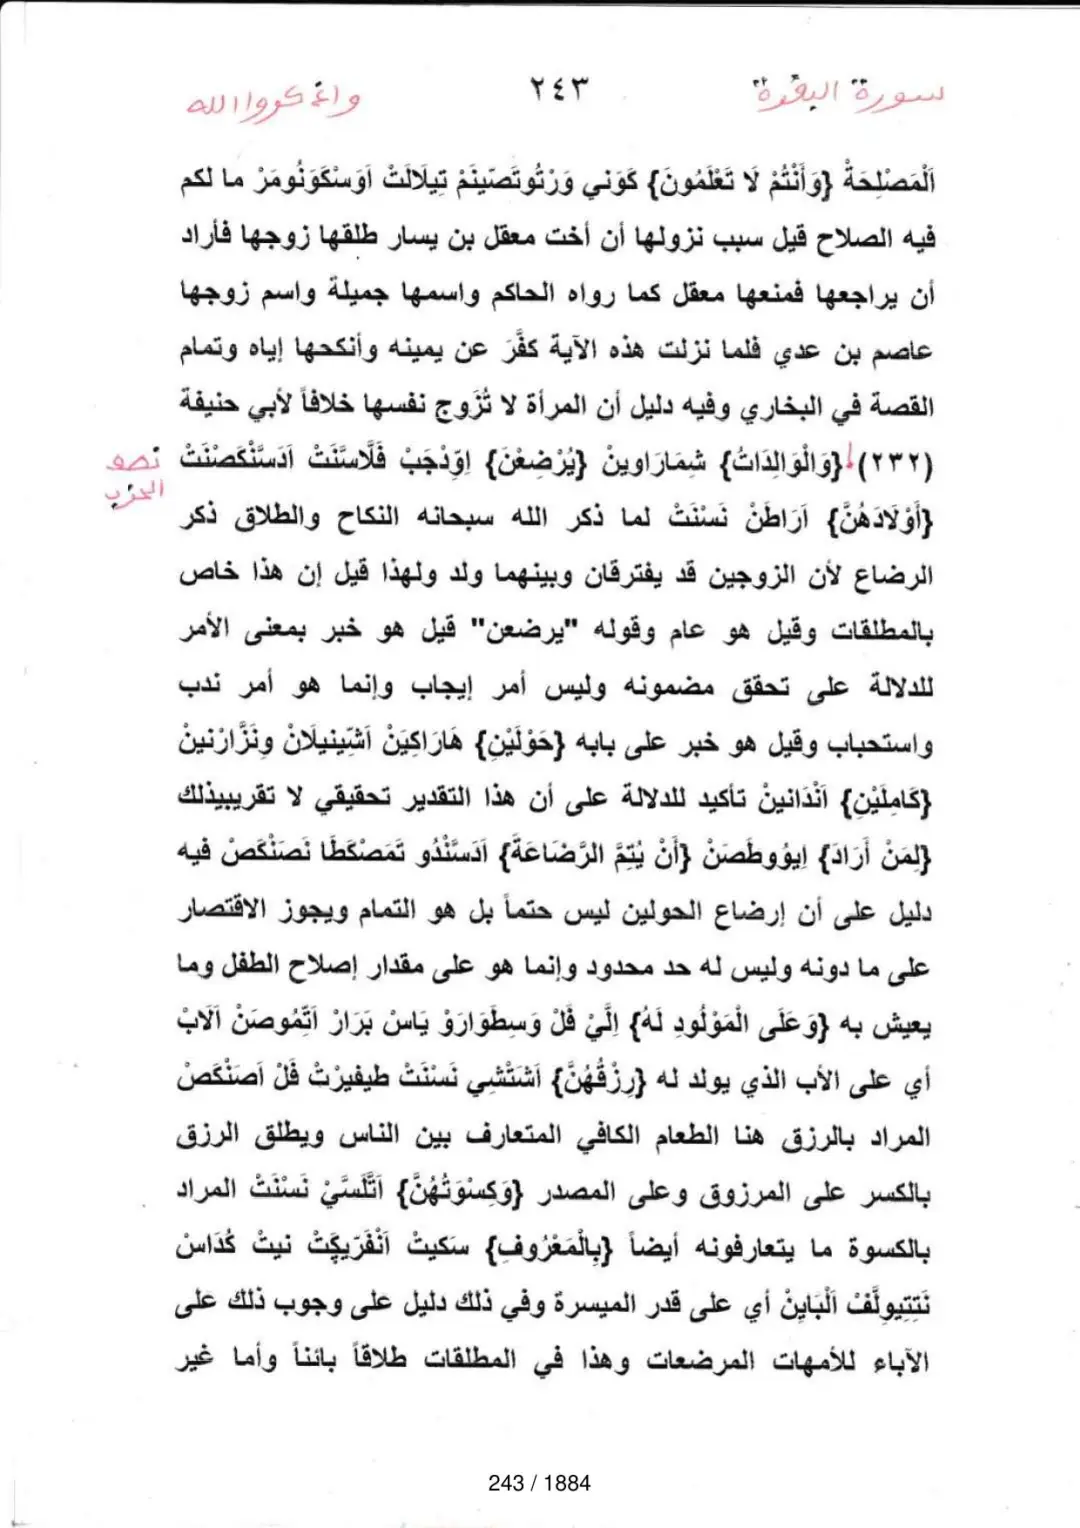 سورة البقرة ٢٤٣ واذكروا الله
اَلْمَصْلِحَةْ {وَأَنْتُمْ لَا تَعْلَمُونَ} كَوَنِي وَرْتُوتَصّينَمْ تِيلَالَتْ اَوَسْكَوَنُومَرْ ما لكم
فيه الصلاح قيل سبب نزولها أن أخت معقل بن يسار طلقها زوجها فأراد
أن يراجعها فمنعها معقل كما رواه الحاكم واسمها جميلة واسم زوجها
عاصم بن عدي فلما نزلت هذه الآية كفَّرَ عن يمينه وأنكحها إياه وتمام
القصة في البخاري وفيه دليل أن المرأة لا تُزَوج نفسها خلافاً لأبي حنيفة
(٢٣٢) {وَالْوَالِدَاتُ} شِمَارَاوِينْ {يُرْضِعْنَ} اِوّذْجَبْ فَلَّاسَّنَتْ اَدَسَّنْكَصْنَتْ
نصف
الحزب
{أَوْلَادَهُنَّ} اَرَاطَنْ نَسْنَتْ لما ذكر الله سبحانه النكاح والطلاق ذكر
الرضاع لأن الزوجين قد يفترقان وبينهما ولد ولهذا قيل إن هذا خاص
بالمطلقات وقيل هو عام وقوله "يرضعن" قيل هو خبر بمعنى الأمر
للدلالة على تحقق مضمونه وليس أمر إيجاب وإنما هو أمر ندب
واستحباب وقيل هو خبر على بابه {حَوْلَيْنِ} هَارَاكِيَنْ اَشّينِيلَانْ ونَزَّارْنينْ
{كَامِلَيْنِ} اَنْدَانينْ تأكيد للدلالة على أن هذا التقدير تحقيقي لا تقريبيذلك
{لِمَنْ أَرَادَ} اِيوُوطَصَنْ {أَنْ يُتِمَّ الرَّضَاعَةَ} اَدَسَّنْدُو تَمَصْكَطَا نَصَنْكَصْ فيه
دليل على أن إرضاع الحولين ليس حتماً بل هو التمام ويجوز الاقتصار
على ما دونه وليس له حد محدود وإنما هو على مقدار إصلاح الطفل وما
يعيش به {وَعَلَى الْمَوْلُودِ لَهُ} اِلَّيْ فَلْ وَسِطَوَارَوْ يَاسْ بَرَارْ اَتِّمُوصَنْ اَلَابْ
أي على الأب الذي يولد له {رِزْقُهُنَّ} اَشَتْشِي نَسْنَتْ طيفيرْتْ فَلْ اَصَنْكَصْ
المراد بالرزق هنا الطعام الكافي المتعارف بين الناس ويطلق الرزق
بالكسر على المرزوق وعلى المصدر {وَكِسْوَتُهُنَّ} اَتَّلَسَّيْ نَسْنَتْ المراد
بالكسوة ما يتعارفونه أيضاً {بِالْمَعْرُوفِ} سَكيتْ اَنْفَرِيكَتْ نيتْ كُدَاسْ
نَتِتِيولَّفْ اَلْبَاينْ أي على قدر الميسرة وفي ذلك دليل على وجوب ذلك على
الآباء للأمهات المرضعات وهذا في المطلقات طلاقاً بائناً وأما غير
243 / 1884